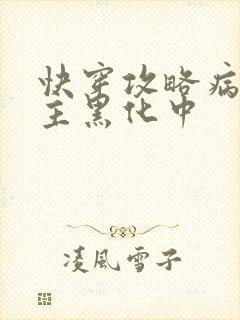 快穿攻略病
主黑化中
凌風雪子